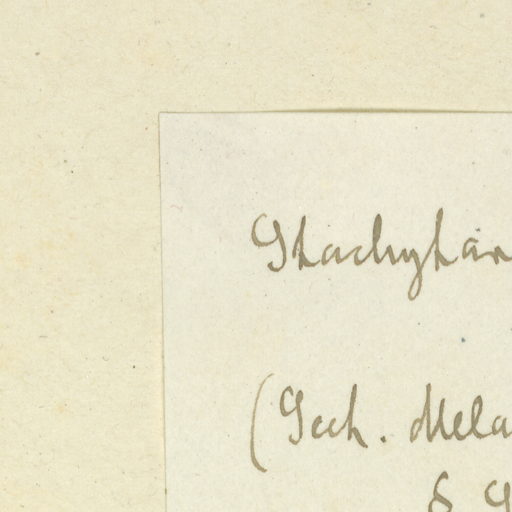 Stachytar
(Sect. Mela
& S